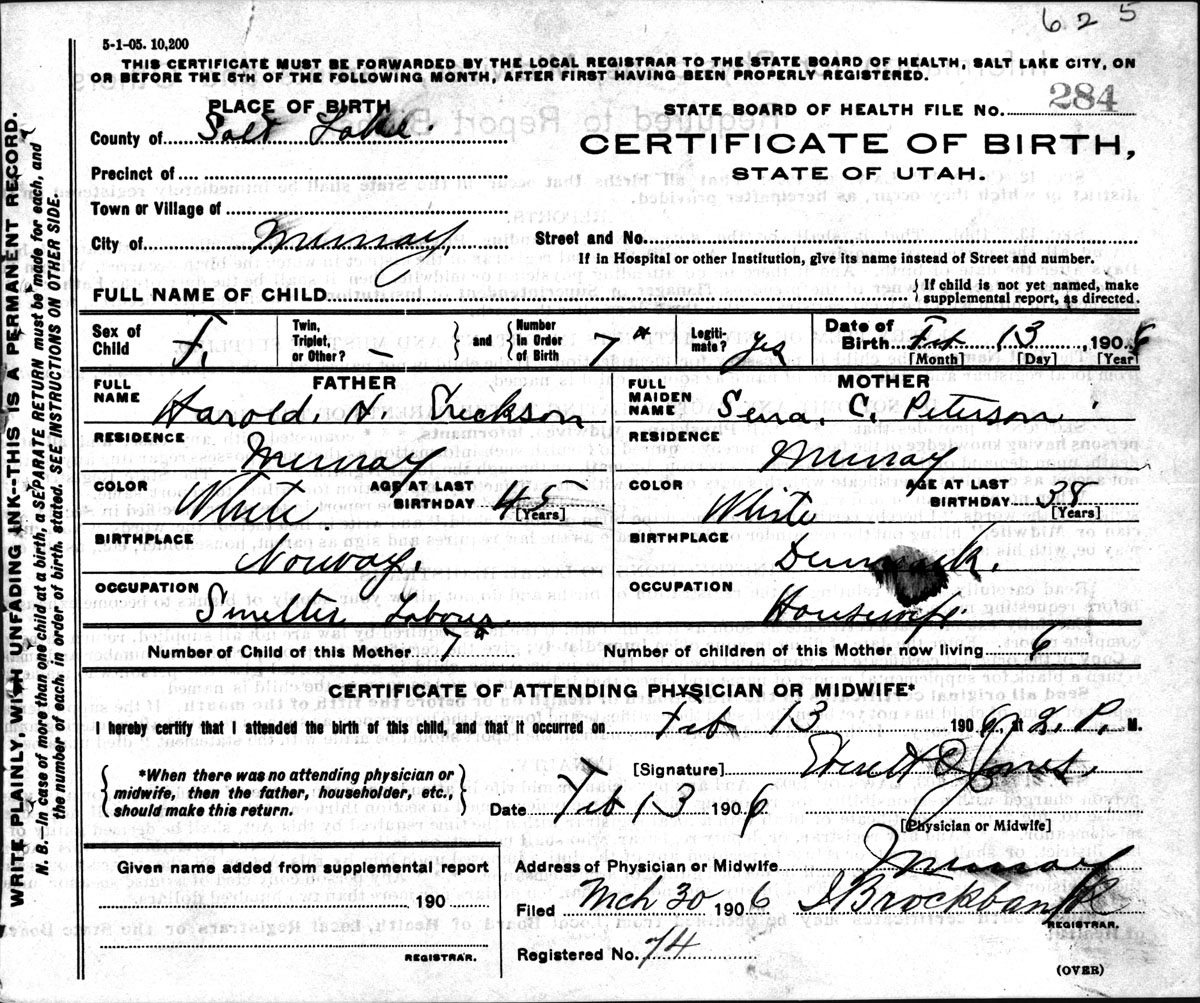 625
5-1-05. 10,200
THIS CERTIFICATE MUST BE FORWARDED BY THE LOCAL REGISTRAR TO THE STATE BOARD OF HEALTH, SALT LAKE CITY, ON
OR BEFORE THE 5TH OF THE FOLLOWING MONTH, AFTER FIRST HAVING BEEN PROPERLY REGISTERED.
PLACE OF BIRTH
STATE BOARD OF HEALTH FILE No. 284
County of Salt Lake.
CERTIFICATE OF BIRTH,
STATE OF UTAH.
Precinct of
Town or Village of
City of Murray Street and No.
If in Hospital or other Institution, give its name instead of Street and number.
FULL NAME OF CHILD { If child is not yet named, make supplemental report, as directed.
Sex of Child F. Twin, Triplet, or Other? – } and { Number in Order of Birth 7th Legitimate? yes Date of Birth Feb 13, 1906
[Month] [Day] [Year]
FATHER
FULL NAME Harold. N. Erickson
RESIDENCE Murray
COLOR White. AGE AT LAST BIRTHDAY 45 [Years]
BIRTHPLACE Norway.
OCCUPATION Smelter Labour.
MOTHER
FULL MAIDEN NAME Sena. C. Peterson.
RESIDENCE Murray
COLOR White AGE AT LAST BIRTHDAY 38 [Years]
BIRTHPLACE Denmark.
OCCUPATION Housewife.
Number of Child of this Mother 7th Number of children of this Mother now living 6
CERTIFICATE OF ATTENDING PHYSICIAN OR MIDWIFE*
I hereby certify that I attended the birth of this child, and that it occurred on Feb 13 1906, at 2. P. M.
{ *When there was no attending physician or midwife, then the father, householder, etc., should make this return. }
[Signature] Jones.
Date Feb 13 1906
[Physician or Midwife]
Given name added from supplemental report
190
REGISTRAR.
Address of Physician or Midwife Murray
Filed Mch 30 1906 Brockbank
REGISTRAR.
Registered No. 74
(OVER)
WRITE PLAINLY, WITH UNFADING INK--THIS IS A PERMANENT RECORD.
N. B. In case of more than one child at a birth, a SEPARATE RETURN must be made for each, and
the number of each, in order of birth, stated. SEE INSTRUCTIONS ON OTHER SIDE.